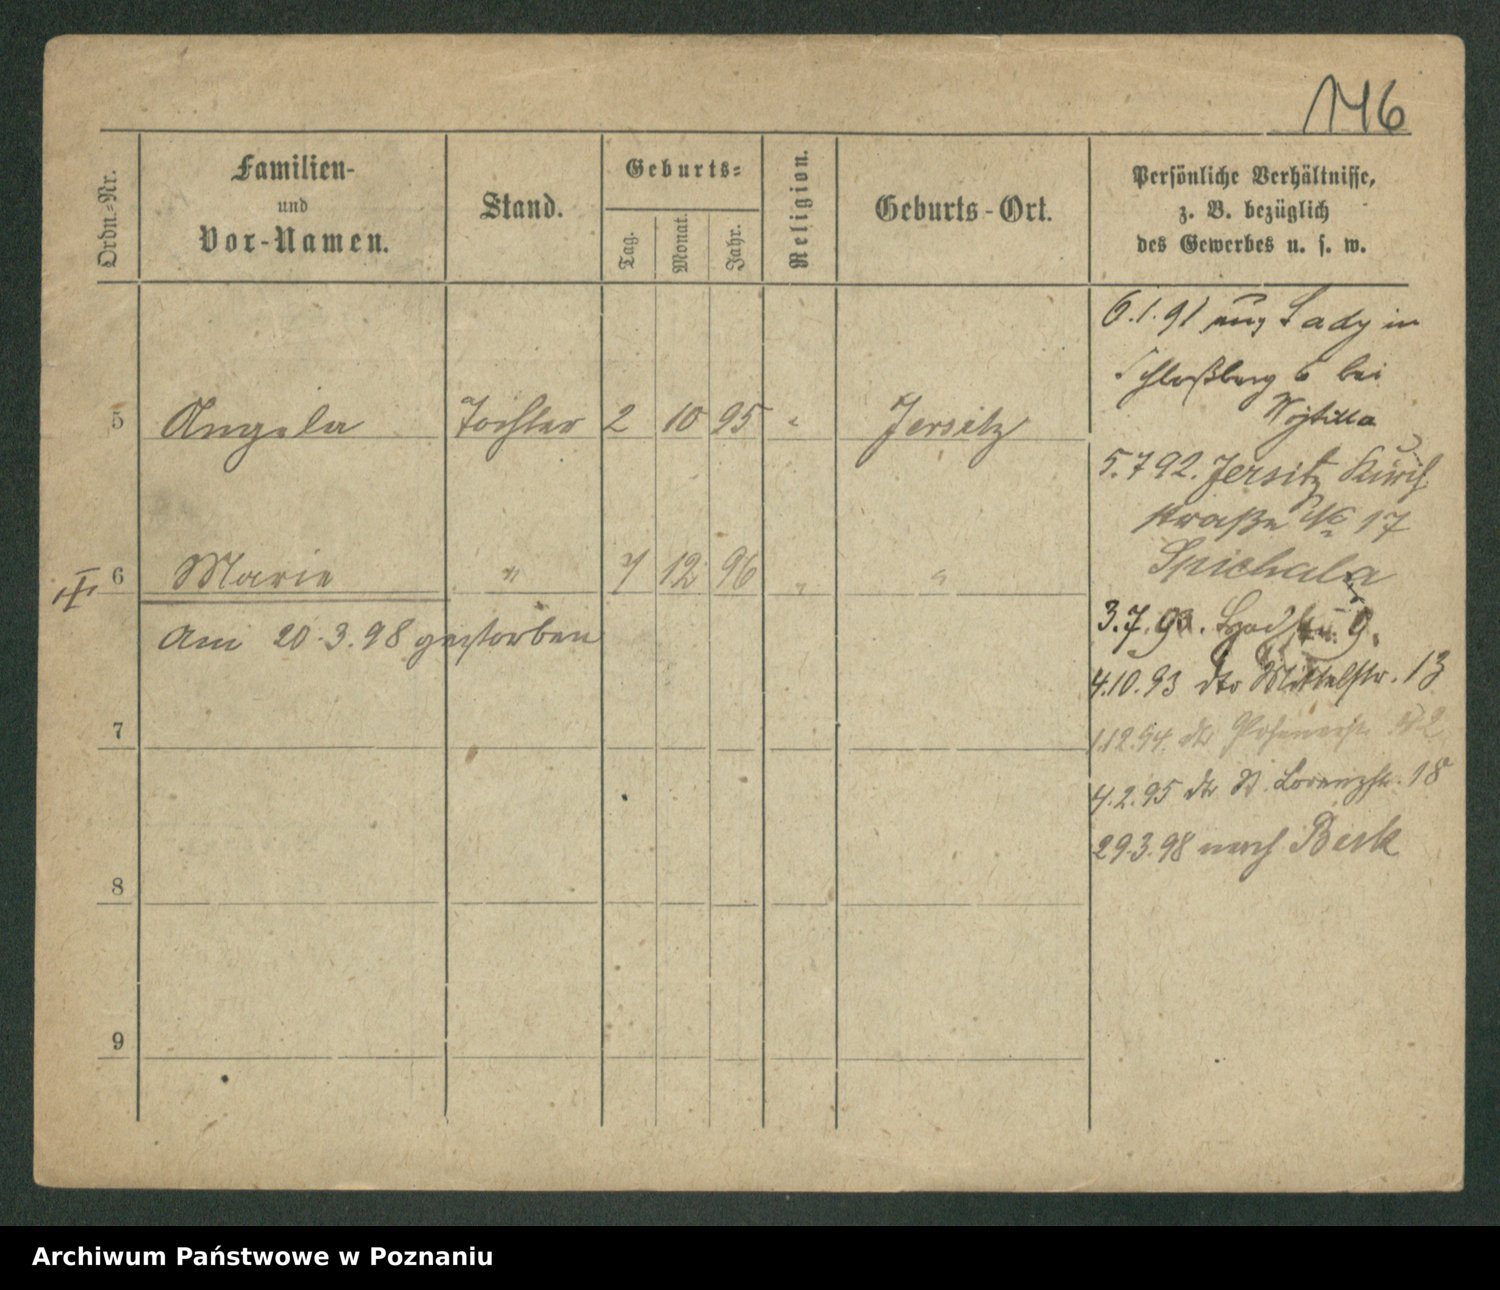 146
Ordn.-Nr.
Familien-
und
Vor-Namen.
Stand.
Geburts-
Tag.
Monat.
Jahr.
Religion.
Geburts-Ort.
Persönliche Verhältnisse,
z. B. bezüglich
des Gewerbes u. s. w.
6.1.91 in
Schloßberg 6 bei
5 Angela Tochter 2 10 95 " Jersitz
5.7 92. Jersitz Kirch
straße No 17
Spichala
6 Marie " 7 12 96 " "
Am 20.3.98 gestorben
3.7. 9.
4.10.93 dto Mittelstr. 13
7
1.12.94. dto Posenerstr.
4.2.95 dto St. Lorenzstr. 18
29.3.98 nach Berk
8
9
Archiwum Państwowe w Poznaniu